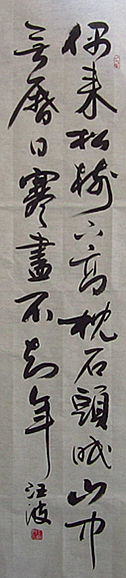 偶来松樹下高枕石頭眠山中
無曆日寒盡不知年
江波